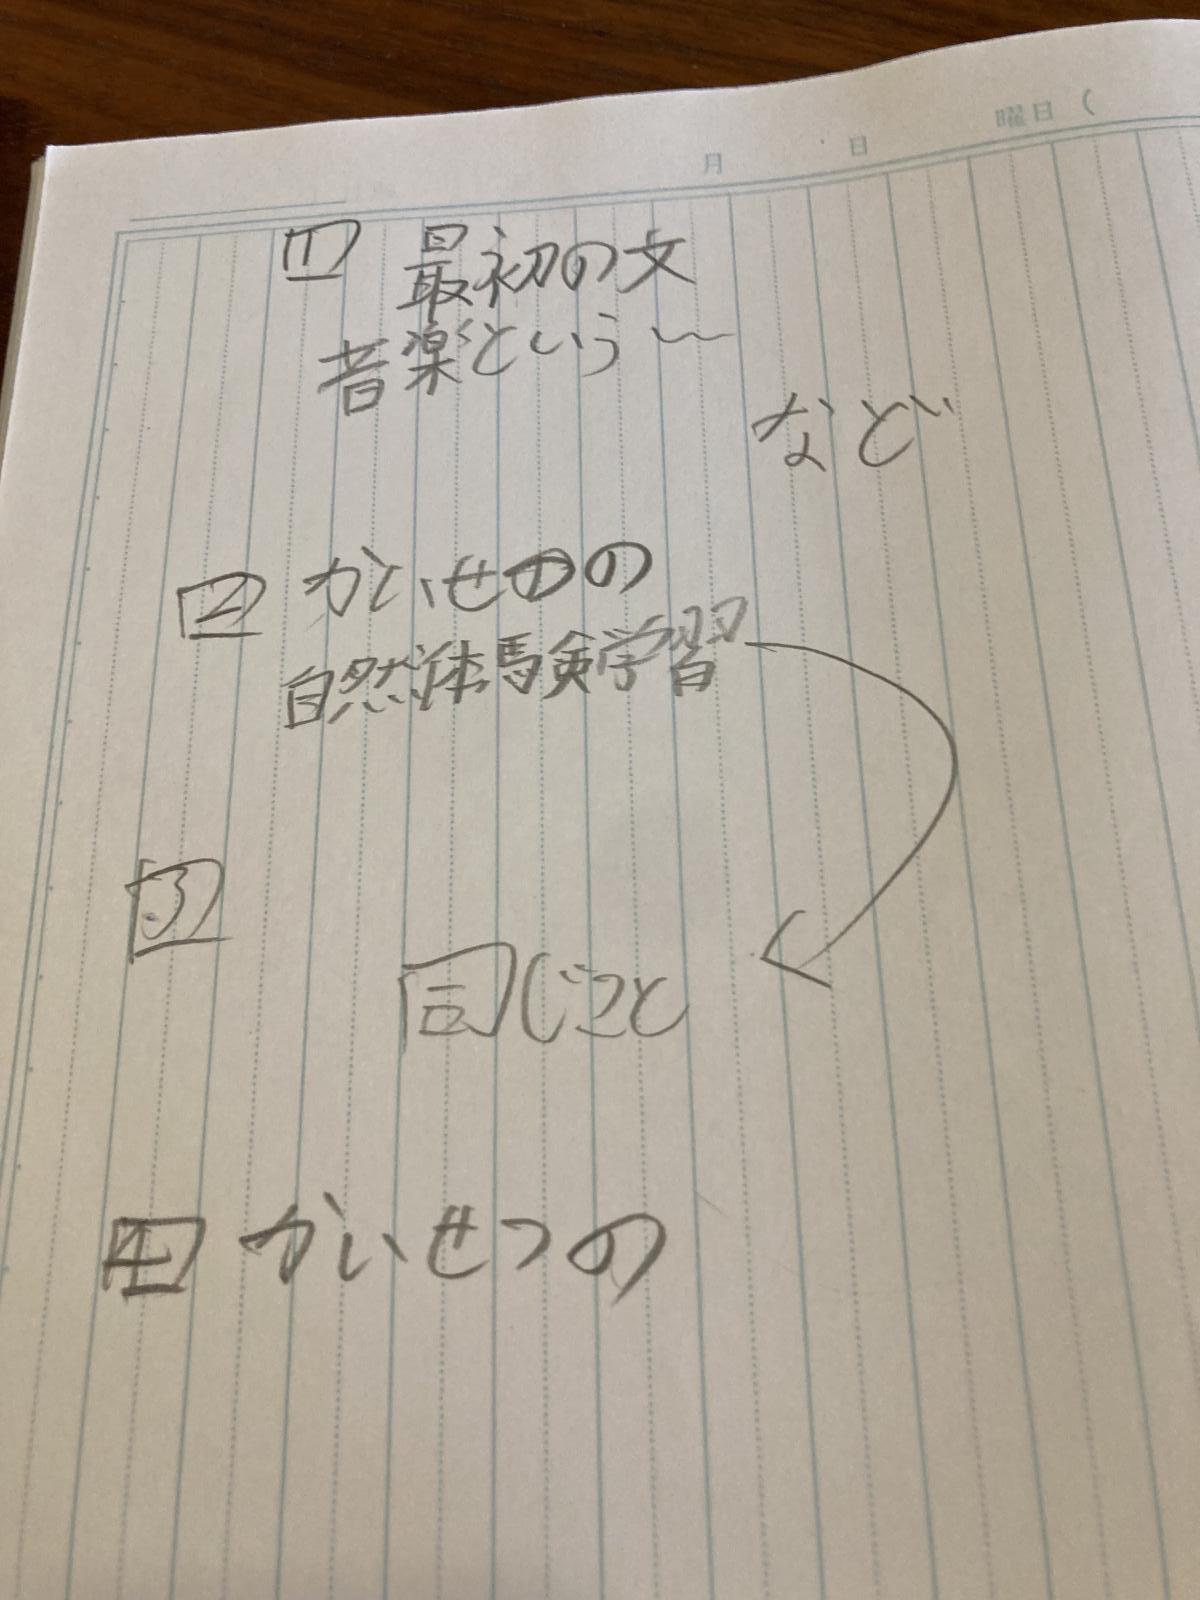 月 日 曜日 (
1 最初の文
音楽という〜
など
2 かいせつの
自然体験学習
3
同じこと
4 かいせつの